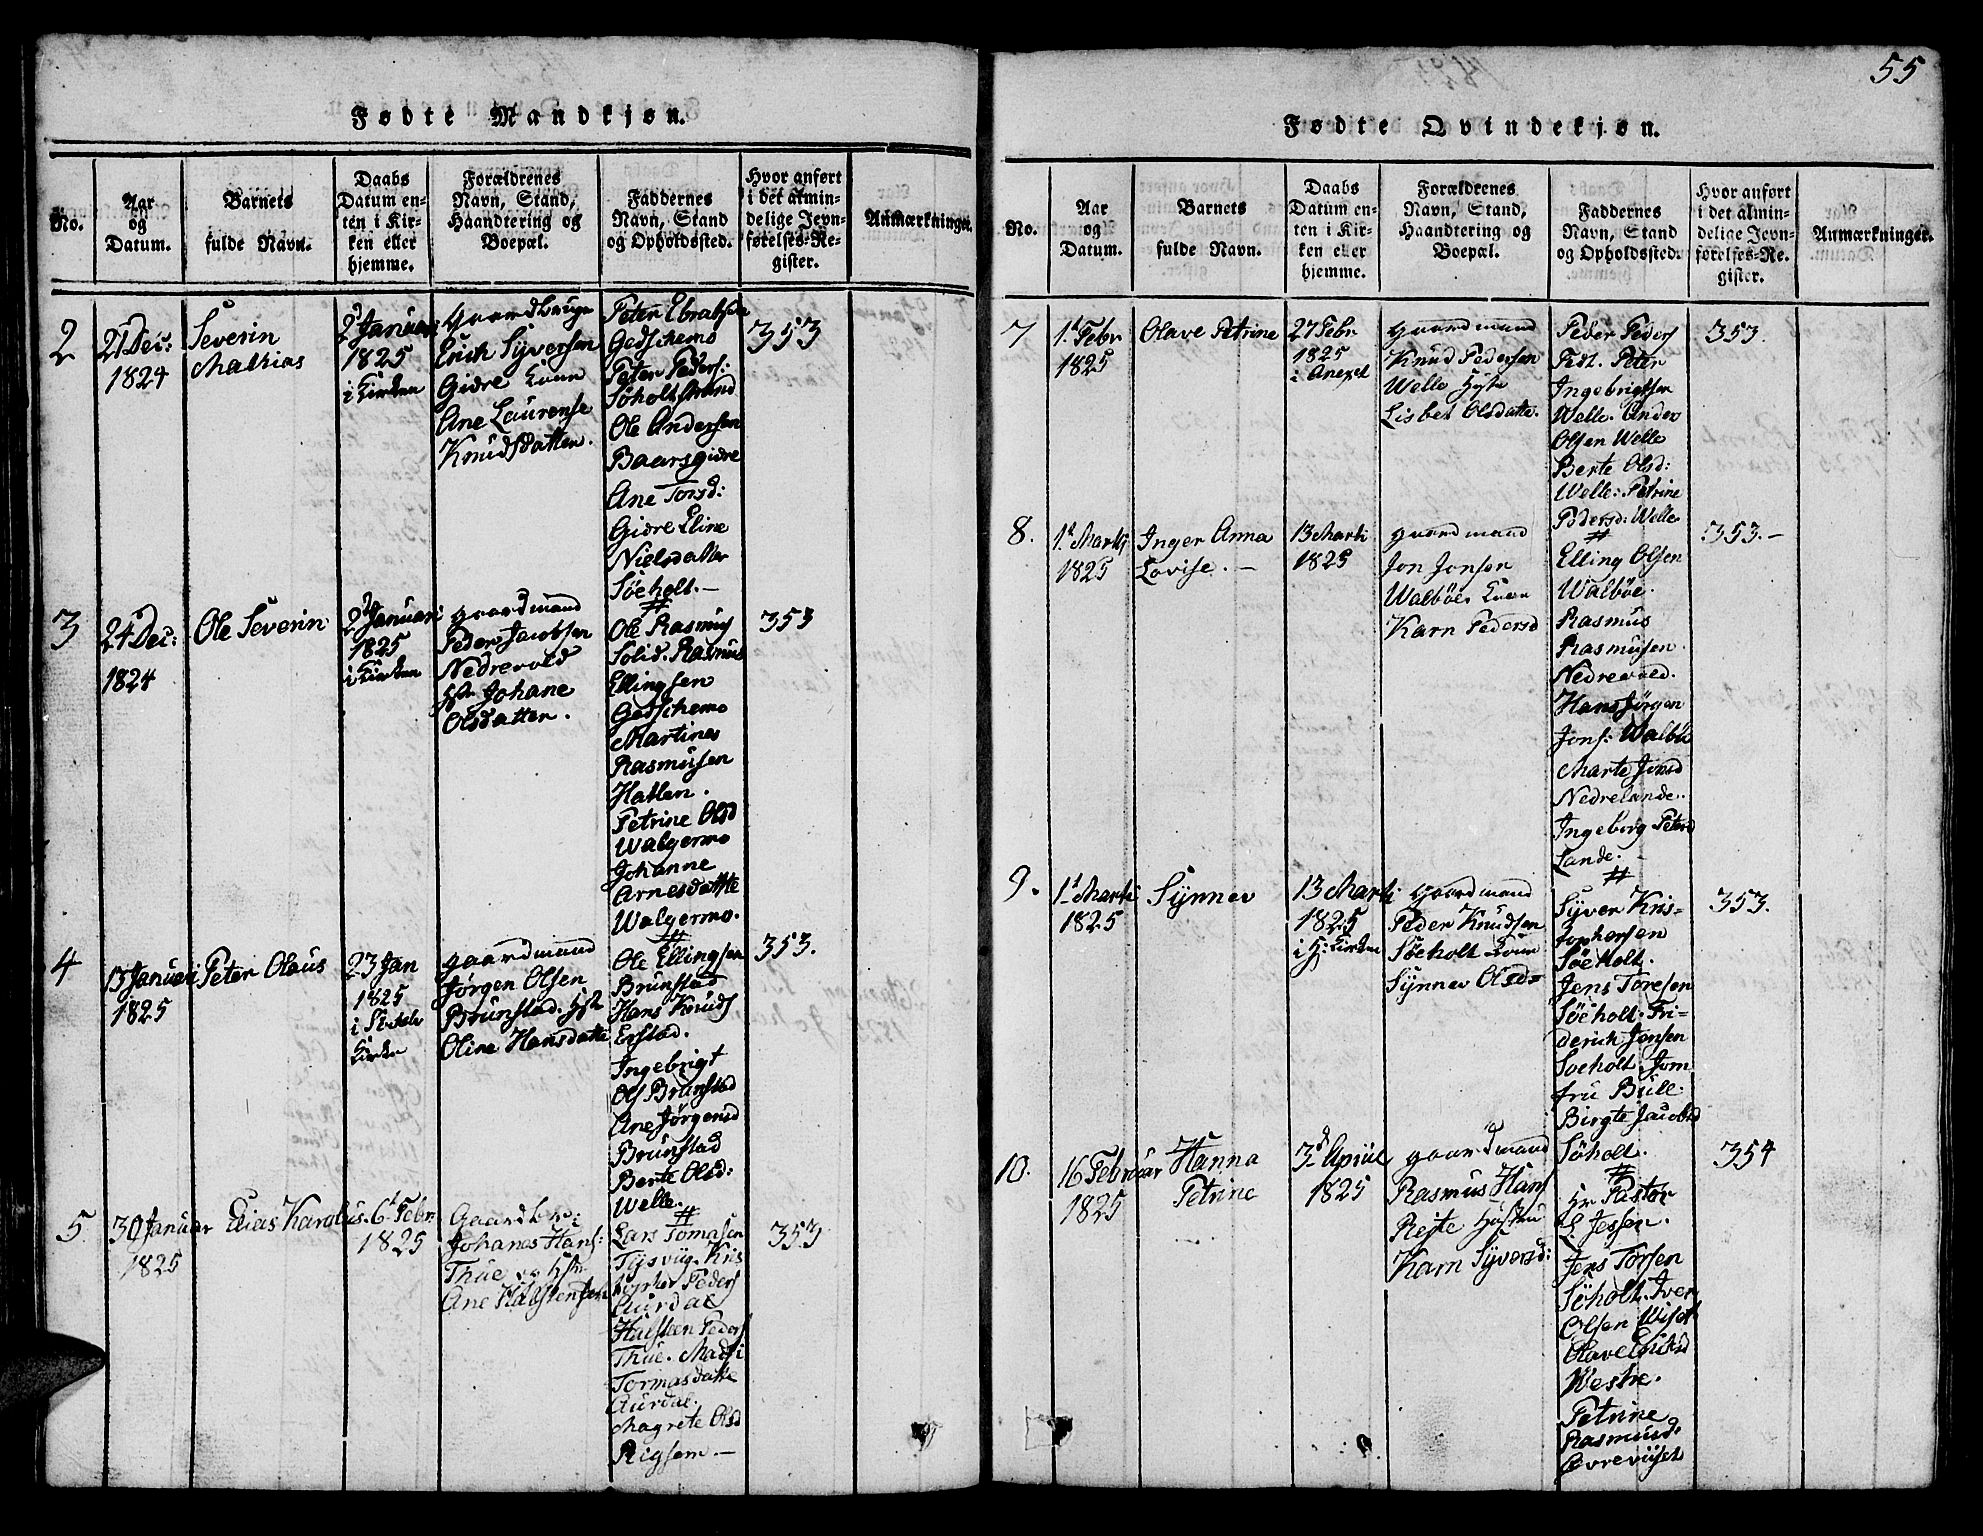 55
Fødte Mandkjøn.
No.
Aar
og
Datum.
Barnets
fulde Navn.
Daabs
Datum en-
ten i Kir-
ken eller
hjemme.
Forældrenes
Navn, Stand,
Haandtering og
Boepæl.
Faddernes
Navn, Stand
og Opholdssted.
Hvor anført
i det almin-
delige Jevn-
førelses-Re-
gister.
Anmærkninger.
2
21 Dec:
1824
Severin
Mathias
2d Januari
1825
i Kirken
Gaardbruger
Erich Syversen
Gidre Kone
Ane Laurense
Knudsdatter.
Peter Ebratsen
Gedschemo
Peter Peders:
Søholtstrand
Ole Andersen
Baarsgidre
Ane Torsd:
Gidre Eline
Nielsdatter
Søeholt.—
353
3
24 Dec:
1824
Ole Severin
2d Januari
1825
i Kirken
gaardmand
Peder Jacobsen
Nedrevold
Hst Johane
Olsdatter.
Ole Rasmus
Solid. Rasmus
Ellingsen
Gedschemo
Martines
Rasmusen
Hatlen.
Petrine Olsd
Walgermo
Johanne
Arnesdatte
Walgermo.
353
4
13 Januari
1825
Peter Olaus
23 Jan
1825
i
Kirke
gaardmand
Jørgen Olsen
Brunstad. Hst
Oline Hansdatte
Ole Ellingsen
Brunstad
Hans Knuds
Erstad.
Ingebrigt
Ols Brunstad
Ane Jørgensd
Brunstad
Berte Olsd:
Welle.
353.
5
30 Januar
1825
Elias Karolus
6t Febr
1825
Gaardbr:
Johanes Hans:
Thue og Hstr
Ane Halstensd
Lars Tomasen
Tysvug. Kris
topher Peders
Aurdal
Halsteen Peders
Thue. Madsi
Tormasdatte
Aurdal.
Magrete Olsd
Rigsem —
353
Fødte Qvindekjøn.
No.
Aar
og
Datum.
Barnets
fulde Navn.
Daabs
Datum en-
ten i Kir-
ken eller
hjemme.
Forældrenes
Navn, Stand,
Haandtering og
Boepæl.
Faddernes
Navn, Stand
og Opholdssted.
Hvor anført
i det almin-
delige Jevn-
førelses-Re-
gister.
Anmærkninger.
7
1t Febr
1825
Olave Petrine
27 Febr
1825
i Anexet
gaardmand
Knud Pedersen
Welle Hste
Lisbet Olsdatte.
Peder Peders
Peter
Ingebrigtsen
Welle. Ander
Olsen Welle
Berte Olsd:
Welle: Petrine
Pedersd: Welle
353.
8.
1t Marti
1825
Inger Anna
Lovise. —
13 Marti
1825
gaardmand
Jon Jonsen
Walbøe Kone
Karn Pedersd
Elling Olsen
Walbøe.
Rasmus
Rasmusen.
Nedrevold.
Hans Jørgen
Jons: Walbø
Marte Jonsd
Nedrelande.
Ingeborg Petersd
Lande.
353.—
9.
1t Marti
1825
Synnev
13 Marti
1825
i H: Kirken
gaardmand
Peder Knudsen
Søeholt Kone
Synnev Olsd
Syver Kris-
tophersen
Søeholt.
Jens Toresen
Søeholt. Fri-
derich Jensen
Soeholt. Jom
fru Bull.
Birgte Jacobsd
Søholt.
353.
10.
16 Februar
1825
Hanna
Petrine
3d April
1825
gaardmand
Rasmus Hans
Rejte Hustru
Karn Syversd:
Hr Pastor
L Jessen.
Jens Torsen
Søholt. Iver
Olsen Wiset
Olave Eriksd
Westre.
Petrine
Rasmusd.
Øvreviiset
354